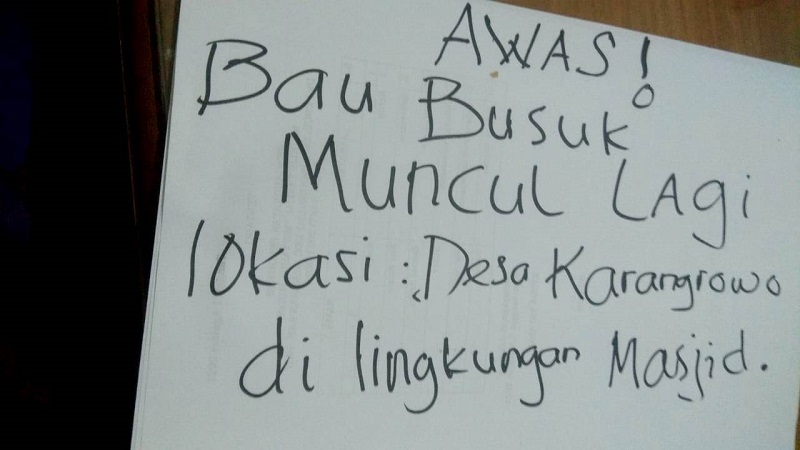 AWAS!
Bau Busuk
Muncul Lagi
lokasi : Desa Karangrowo
di lingkungan Masjid.